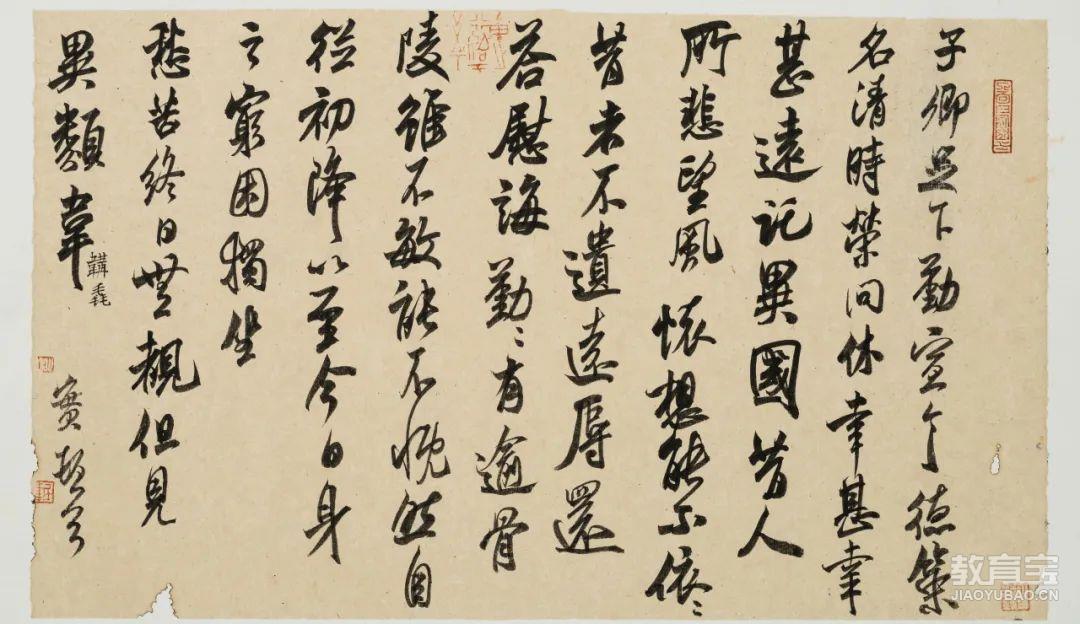 子卿足下勤宣令德策
名清時榮问休幸甚幸
甚遠託異國昔人
所悲望風懷想能不依〻
昔者不遺遠辱還
答慰誨勤〻有逾骨
陵雖不敏能不慨然自
從初降以至今日身
之窮困獨坐
愁苦終日無覩但見
異類韋
韝毳
教育宝
JIAOYUBAO.CN